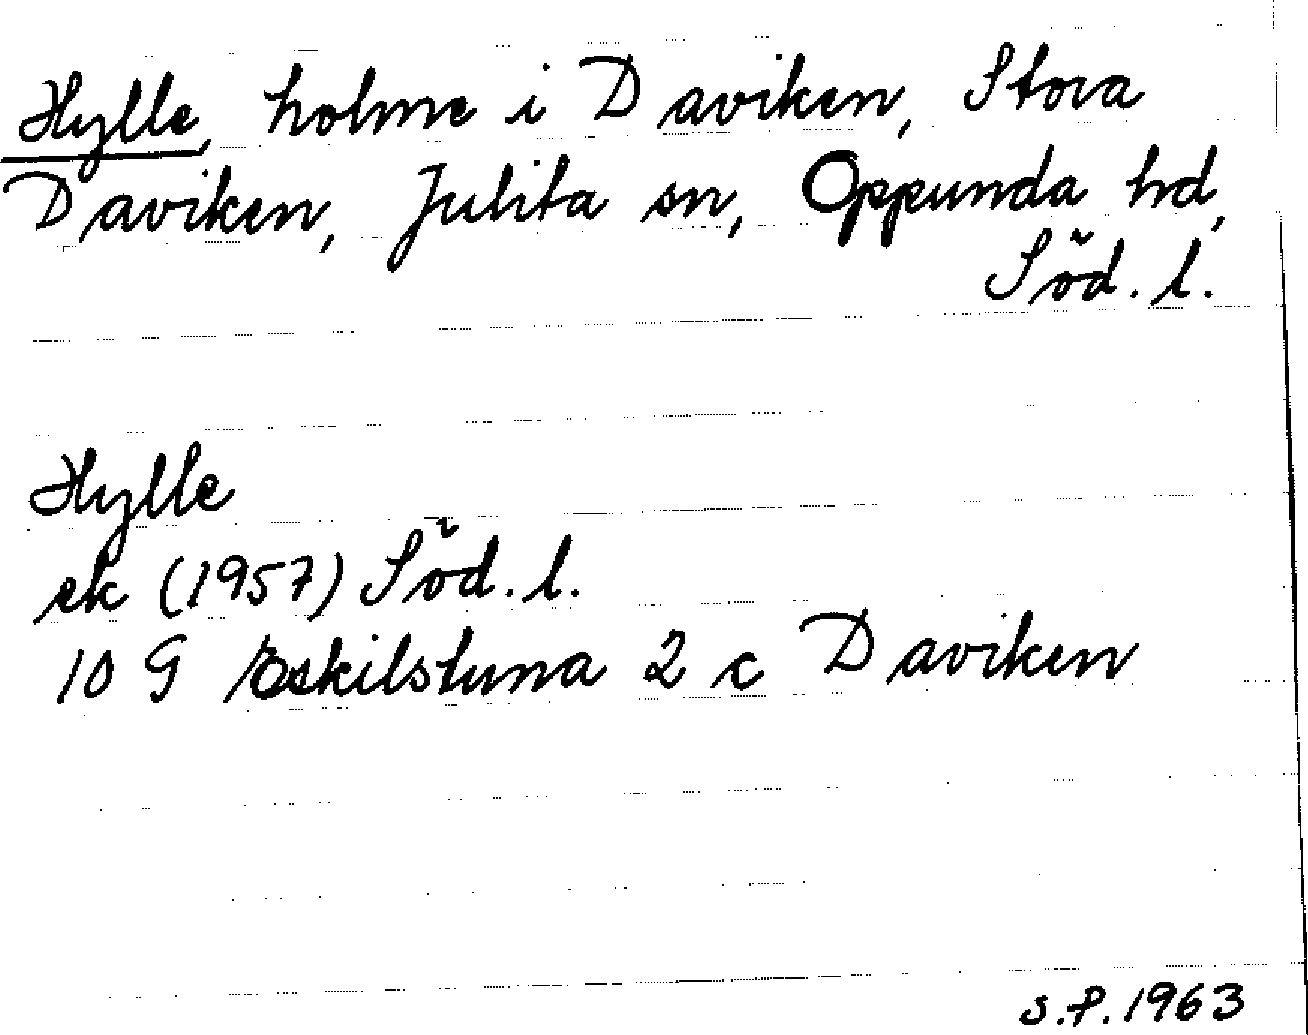 Hylle, holme i Daviken, Stora
Daviken, Julita sn, Oppunda hd,
Söd. l.
Hylle
ek (1957) Söd. l.
10 G Eskilstuna 2 c Daviken
S.P. 1963